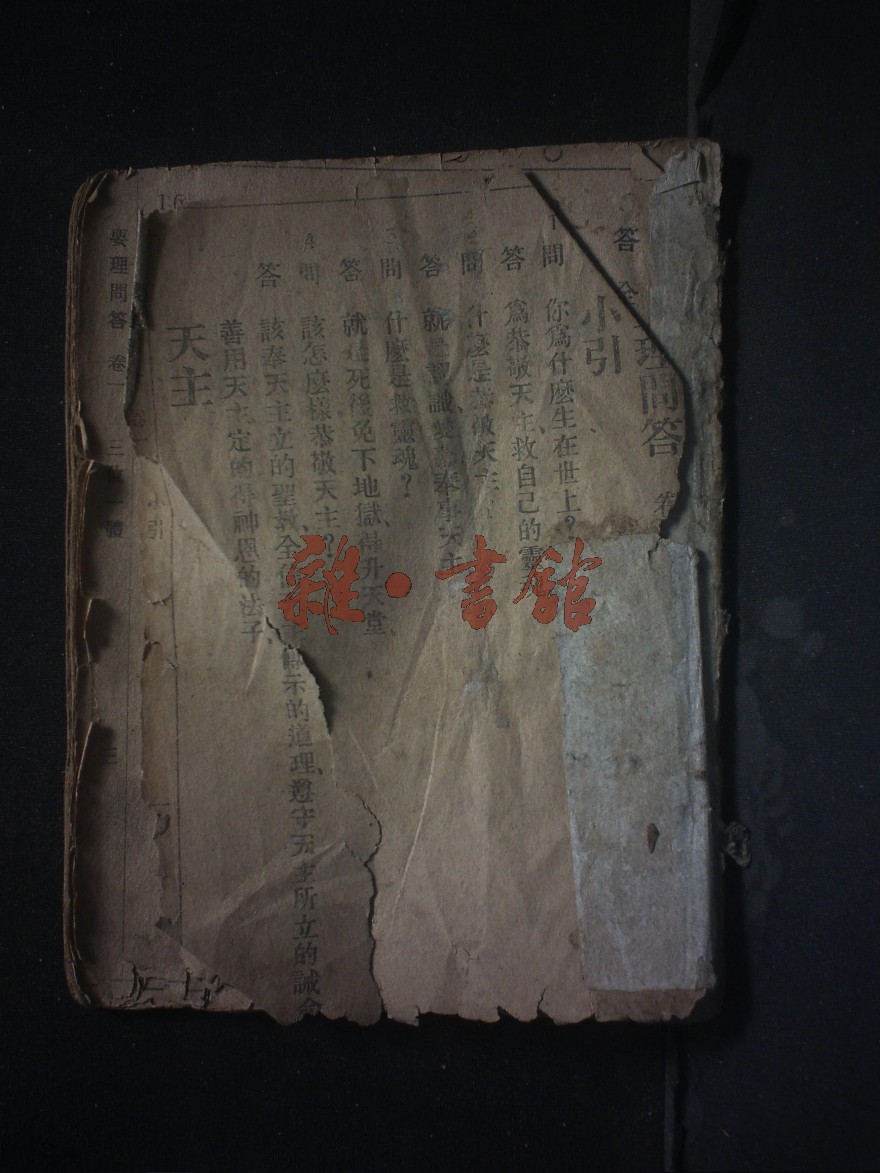 答
理問答 卷
小引
1 問 你爲什麼生在世上?
答 爲恭敬天主、救自己的靈
2 問 什麼是恭敬天主
答 就是認識 奉事天主
3 問 什麼是救靈魂?
答 就是死後免下地獄、得升天堂、
4 問 該怎麼樣恭敬天主?
答 該奉天主立的聖敎、全信 示的道理、遵守天主所立的誡命
善用天主定的得神恩的法子、
天主
16
小引
要理問答 卷一 三 一體 三
雜·書館